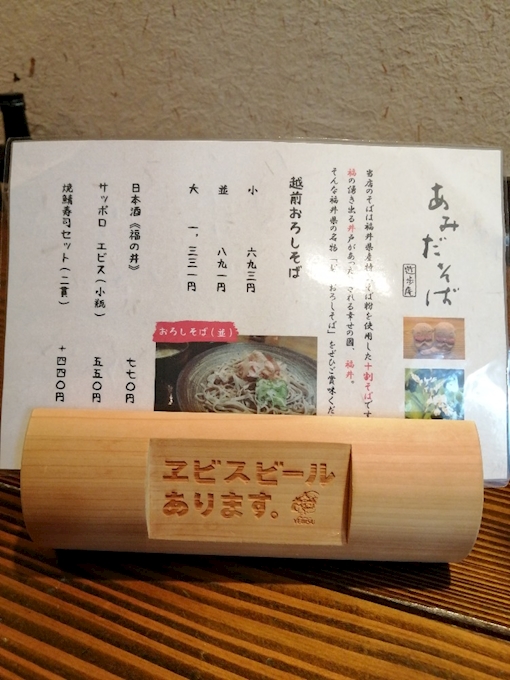 あみだそば
遊歩庵
当店のそばは福井県産特
そば粉を使用した十割そばです
福の湧き出る井戸があった
される幸せの国、福井。
そんな福井県の名物
おろしそば」をぜひご賞味くだ
越前おろしそば
小 六九三円
並 八九一円
大 一、三三一円
おろしそば(並)
日本酒《福の井》 七七〇円
サッポロ ヱビス(小瓶) 五五〇円
焼鯖寿司セット(二貫) +四四〇円
ヱビスビール
あります。
YEBISU